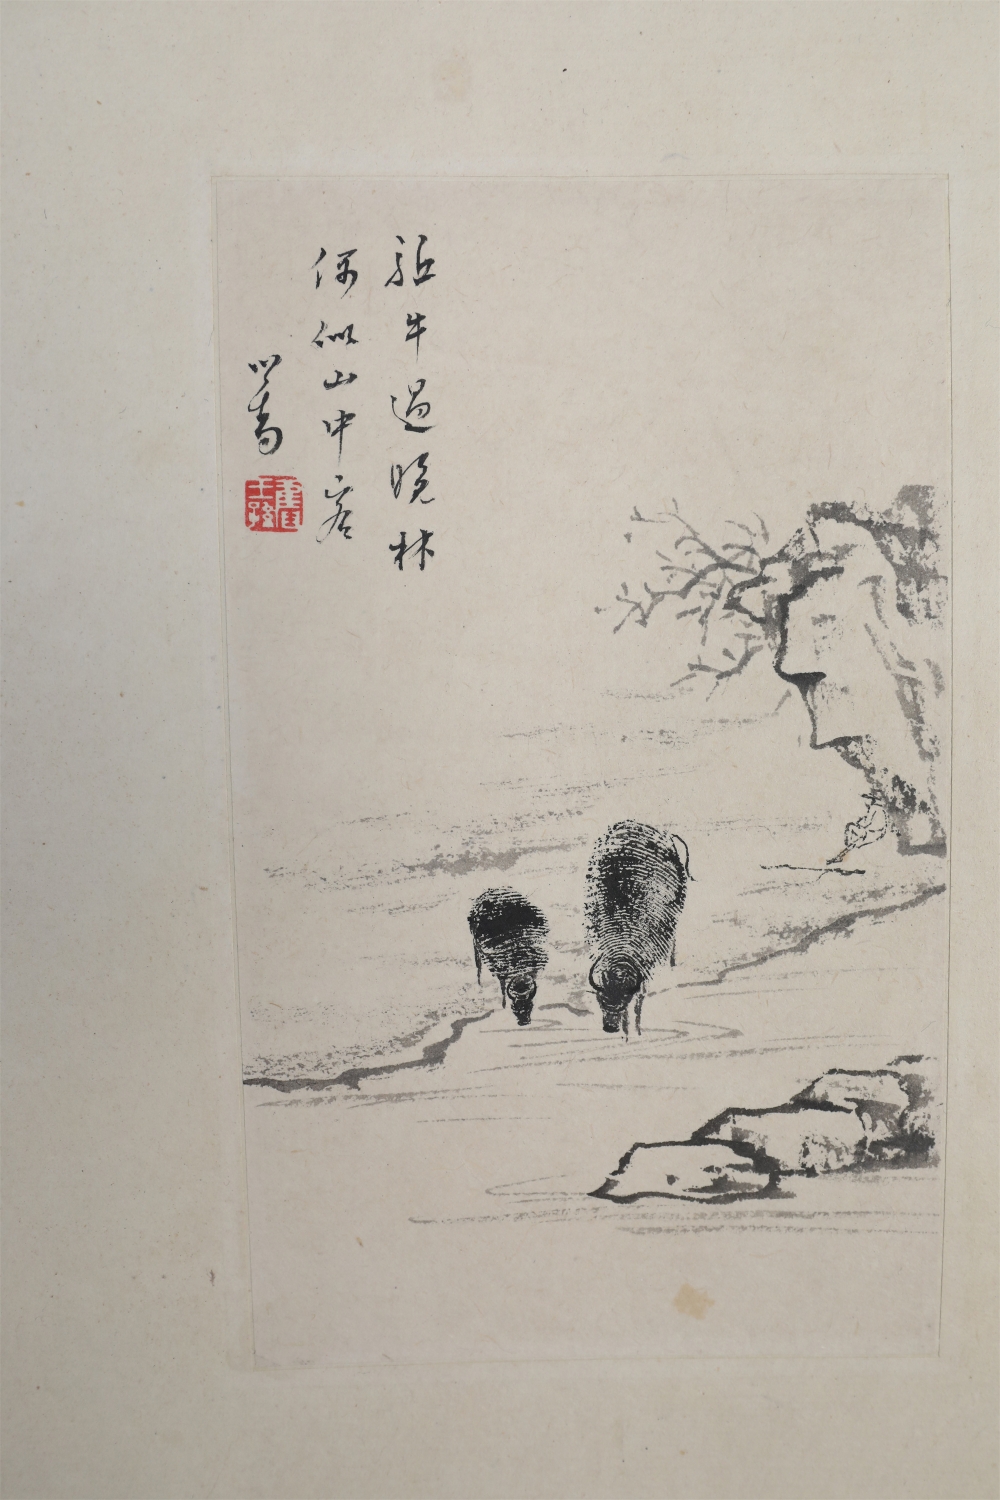 駈牛過晚林
何似山中客
心畬
舊王孫